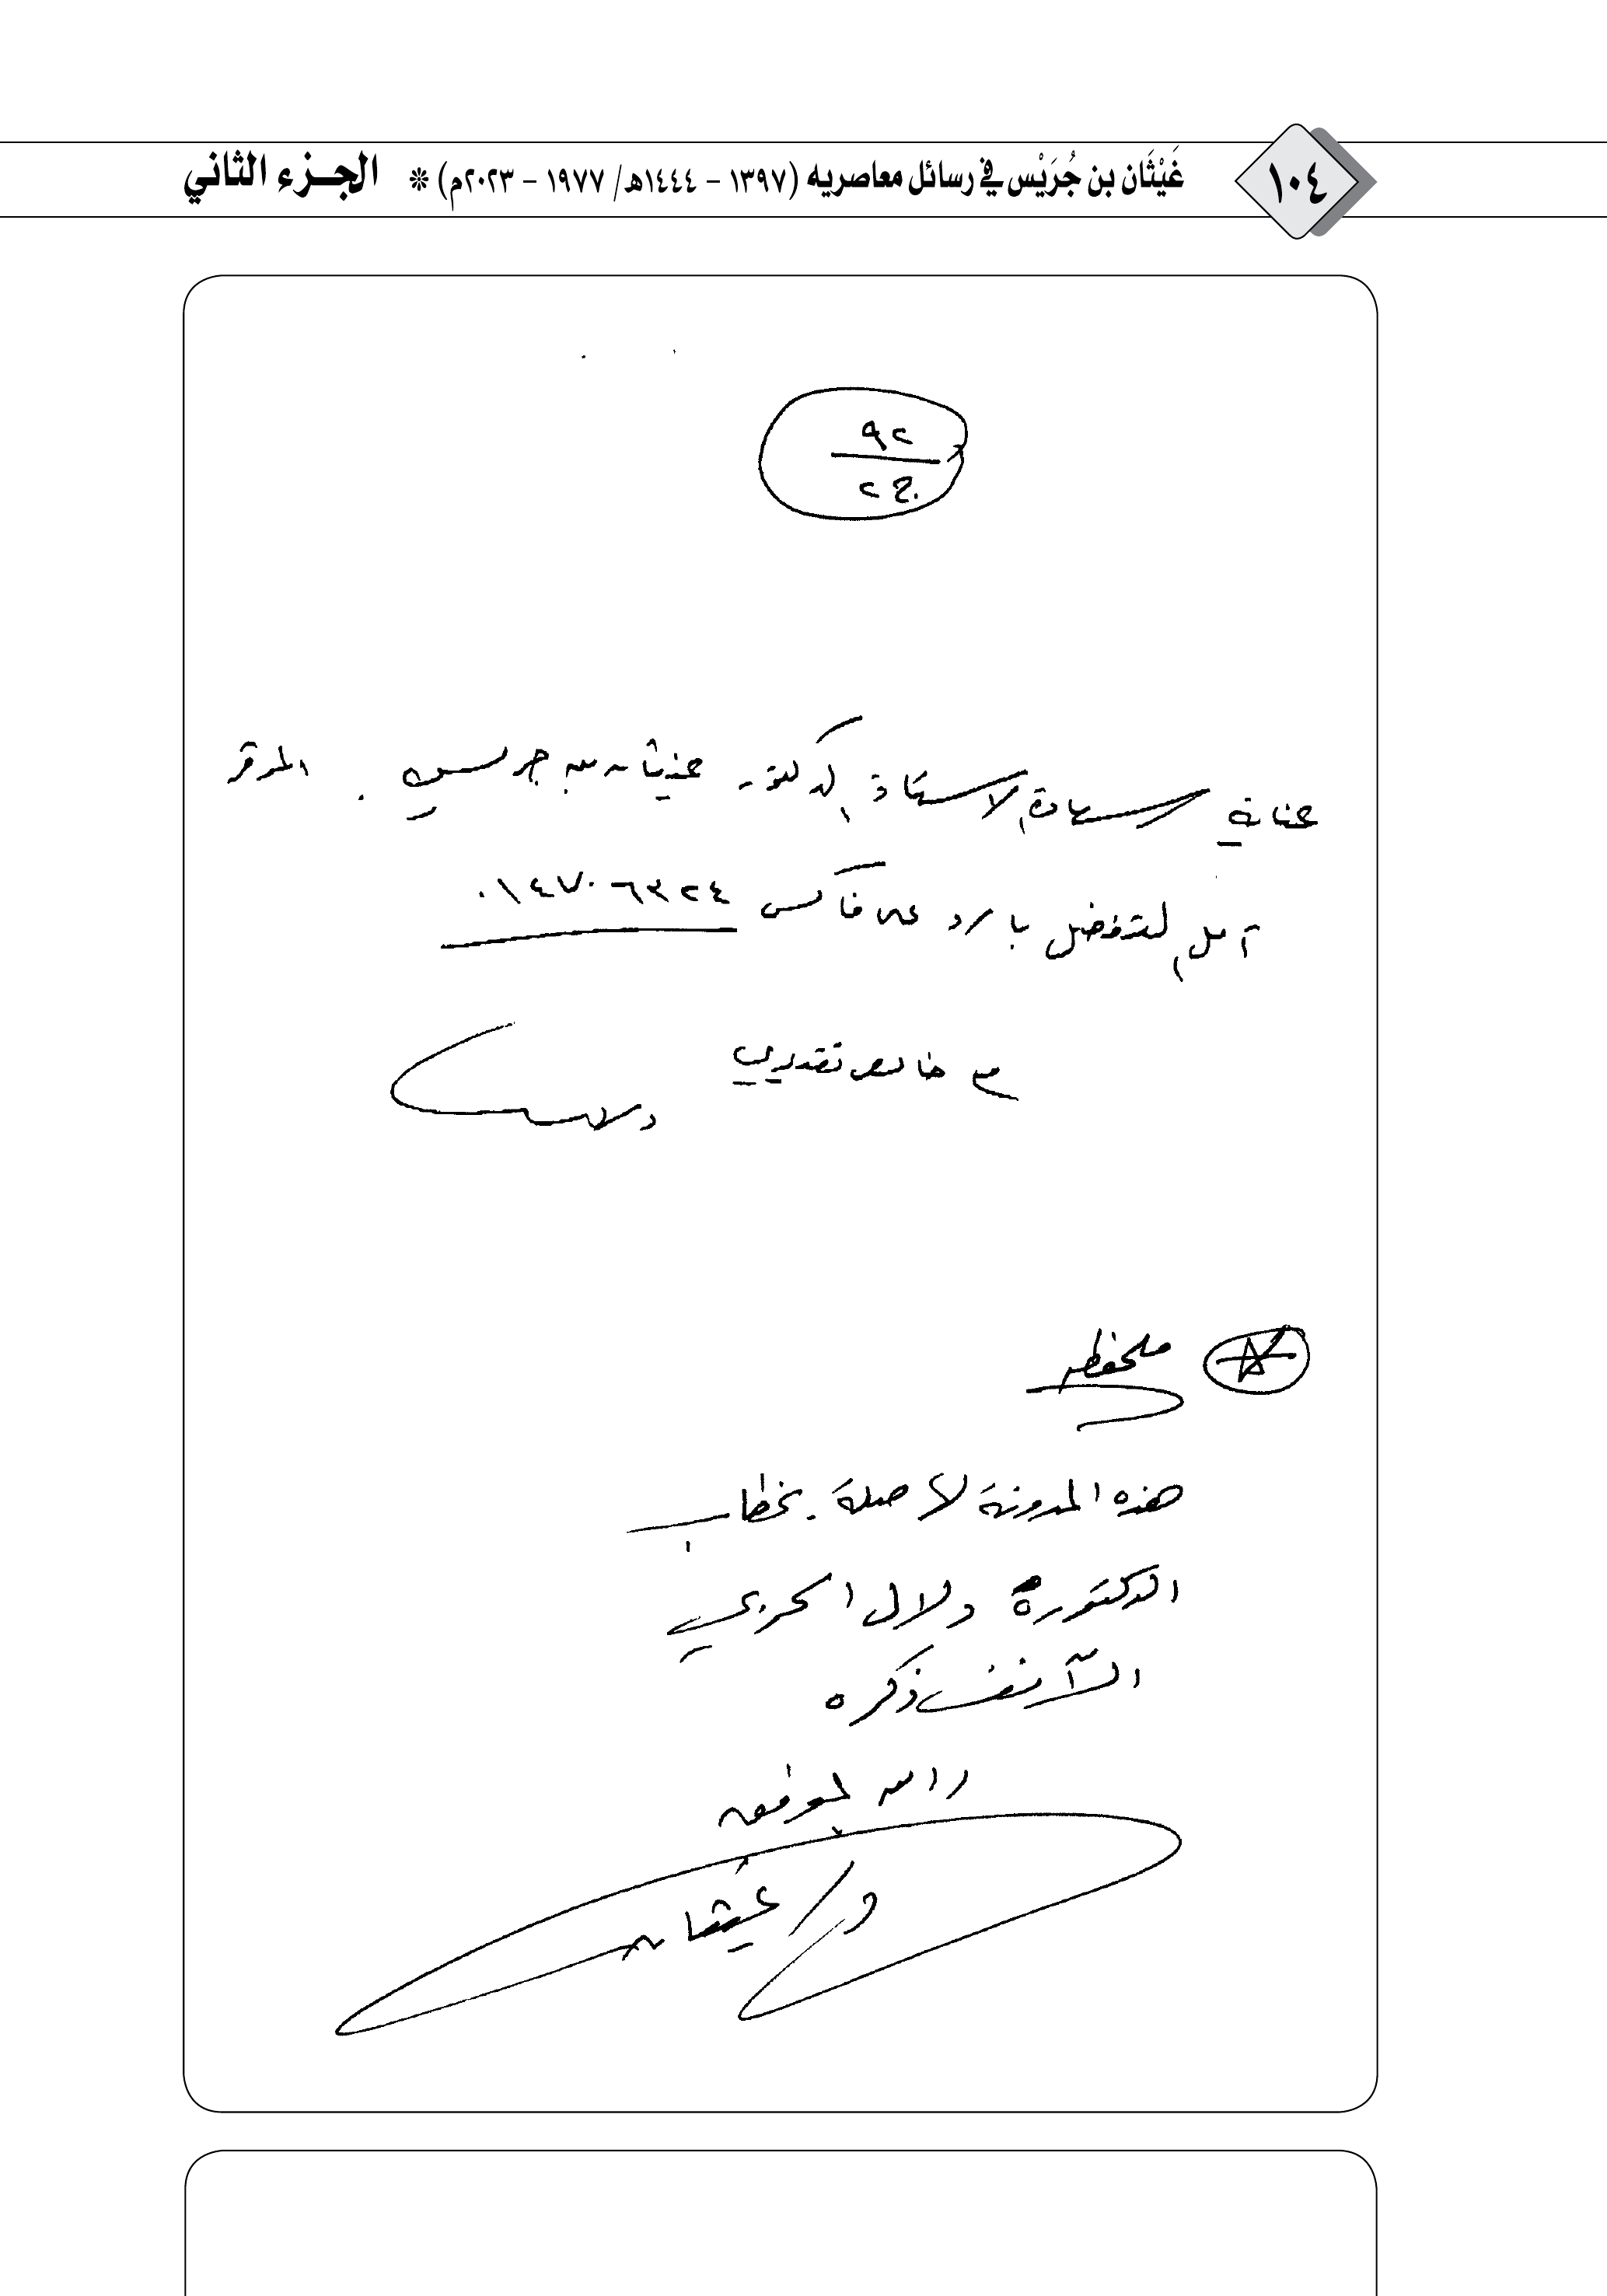 ١٠٤
غَيْثَان بن جُرَيْس في رسائل معاصريه (١٣٩٧ - ١٤٤٤هـ/ ١٩٧٧ - ٢٠٢٣م) * الجزء الثاني
٩٢
ج٢
عناية سعادة الاستاذ الدكتور غيثان بن جريس . الموقر
آمل التفضل بالرد على فاكس ٠١٤٧٠٦٣٢٤
مع خالص تقديري
ملحظه
هذه المدونة لها صلة بخطاب
الدكتورة دلال الحربي
الآنف ذكره
والله الموفق
د/ غيثان